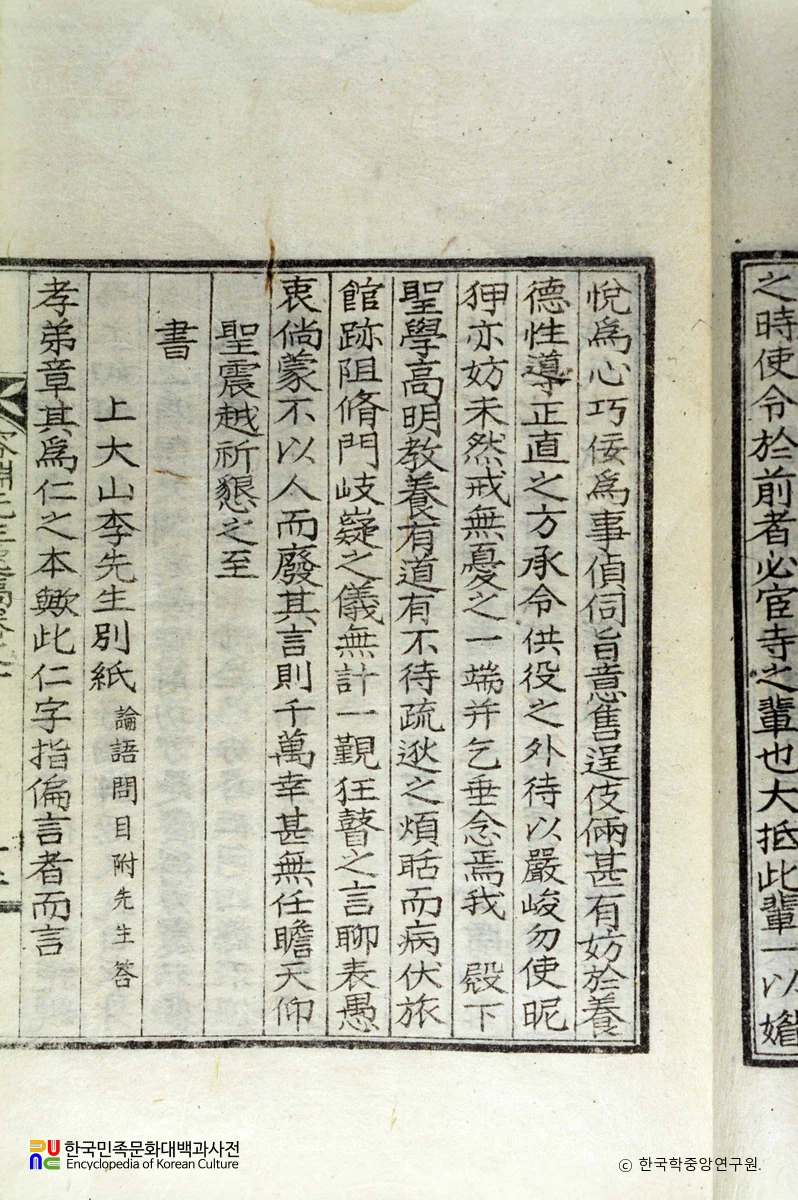 之時使令於前者必宦寺之輩也大抵此輩一以媚
悅爲心巧佞爲事偵伺旨意售逞伎倆甚有妨於養
德性導正直之方承令供役之外待以嚴峻勿使昵
狎亦妨未然戒無憂之一端并乞垂念焉我 殿下
聖學高明敎養有道有不待疏逖之煩聒而病伏旅
館跡阻脩門岐嶷之儀無計一覲狂瞽之言聊表愚
衷倘蒙不以人而廢其言則千萬幸甚無任瞻天仰
聖震越祈懇之至
書
上大山李先生別紙 論語問目附先生答
孝弟章其爲仁之本歟此仁字指偏言者而言
한국민족문화대백과사전
Encyclopedia of Korean Culture
© 한국학중앙연구원.